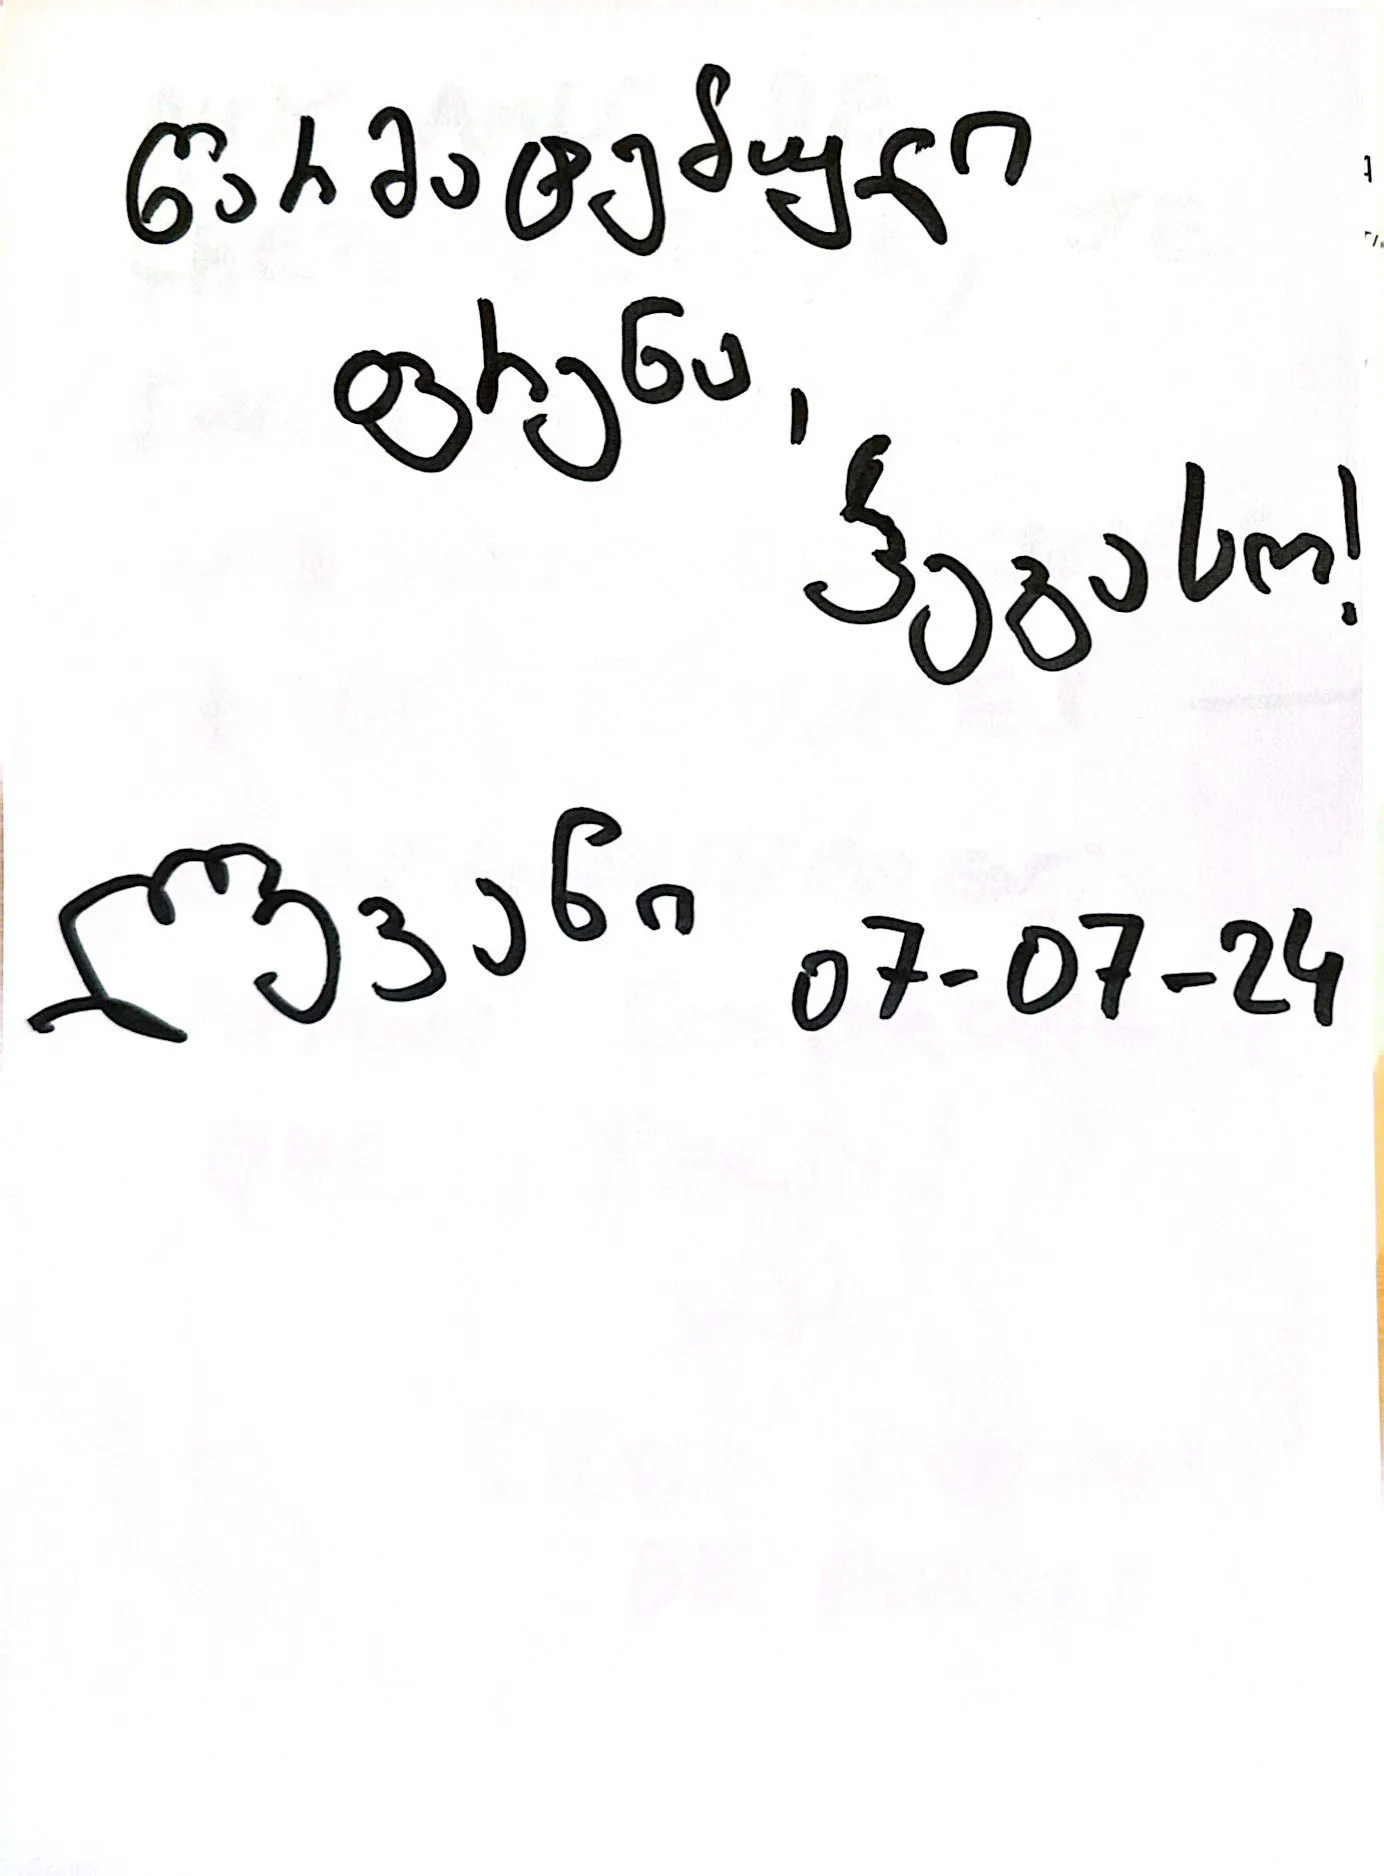 წარმატებული
ფრენა,
პეგასო!
ლევანი 07-07-24